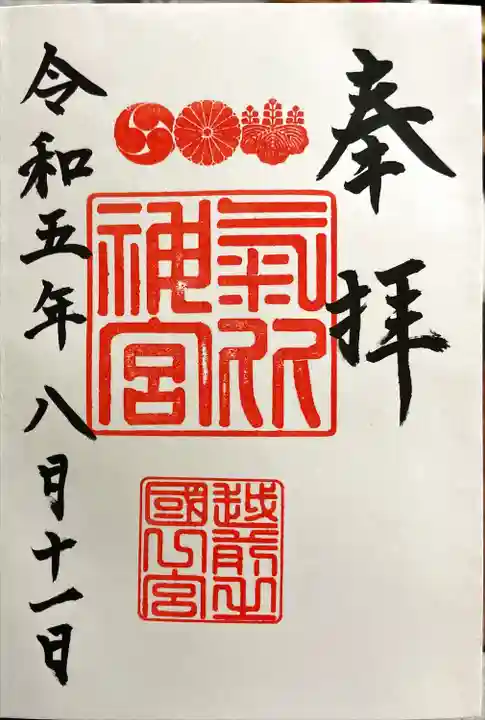 奉拝
氣比
神宮
越前一
國一宮
令和五年八月十一日